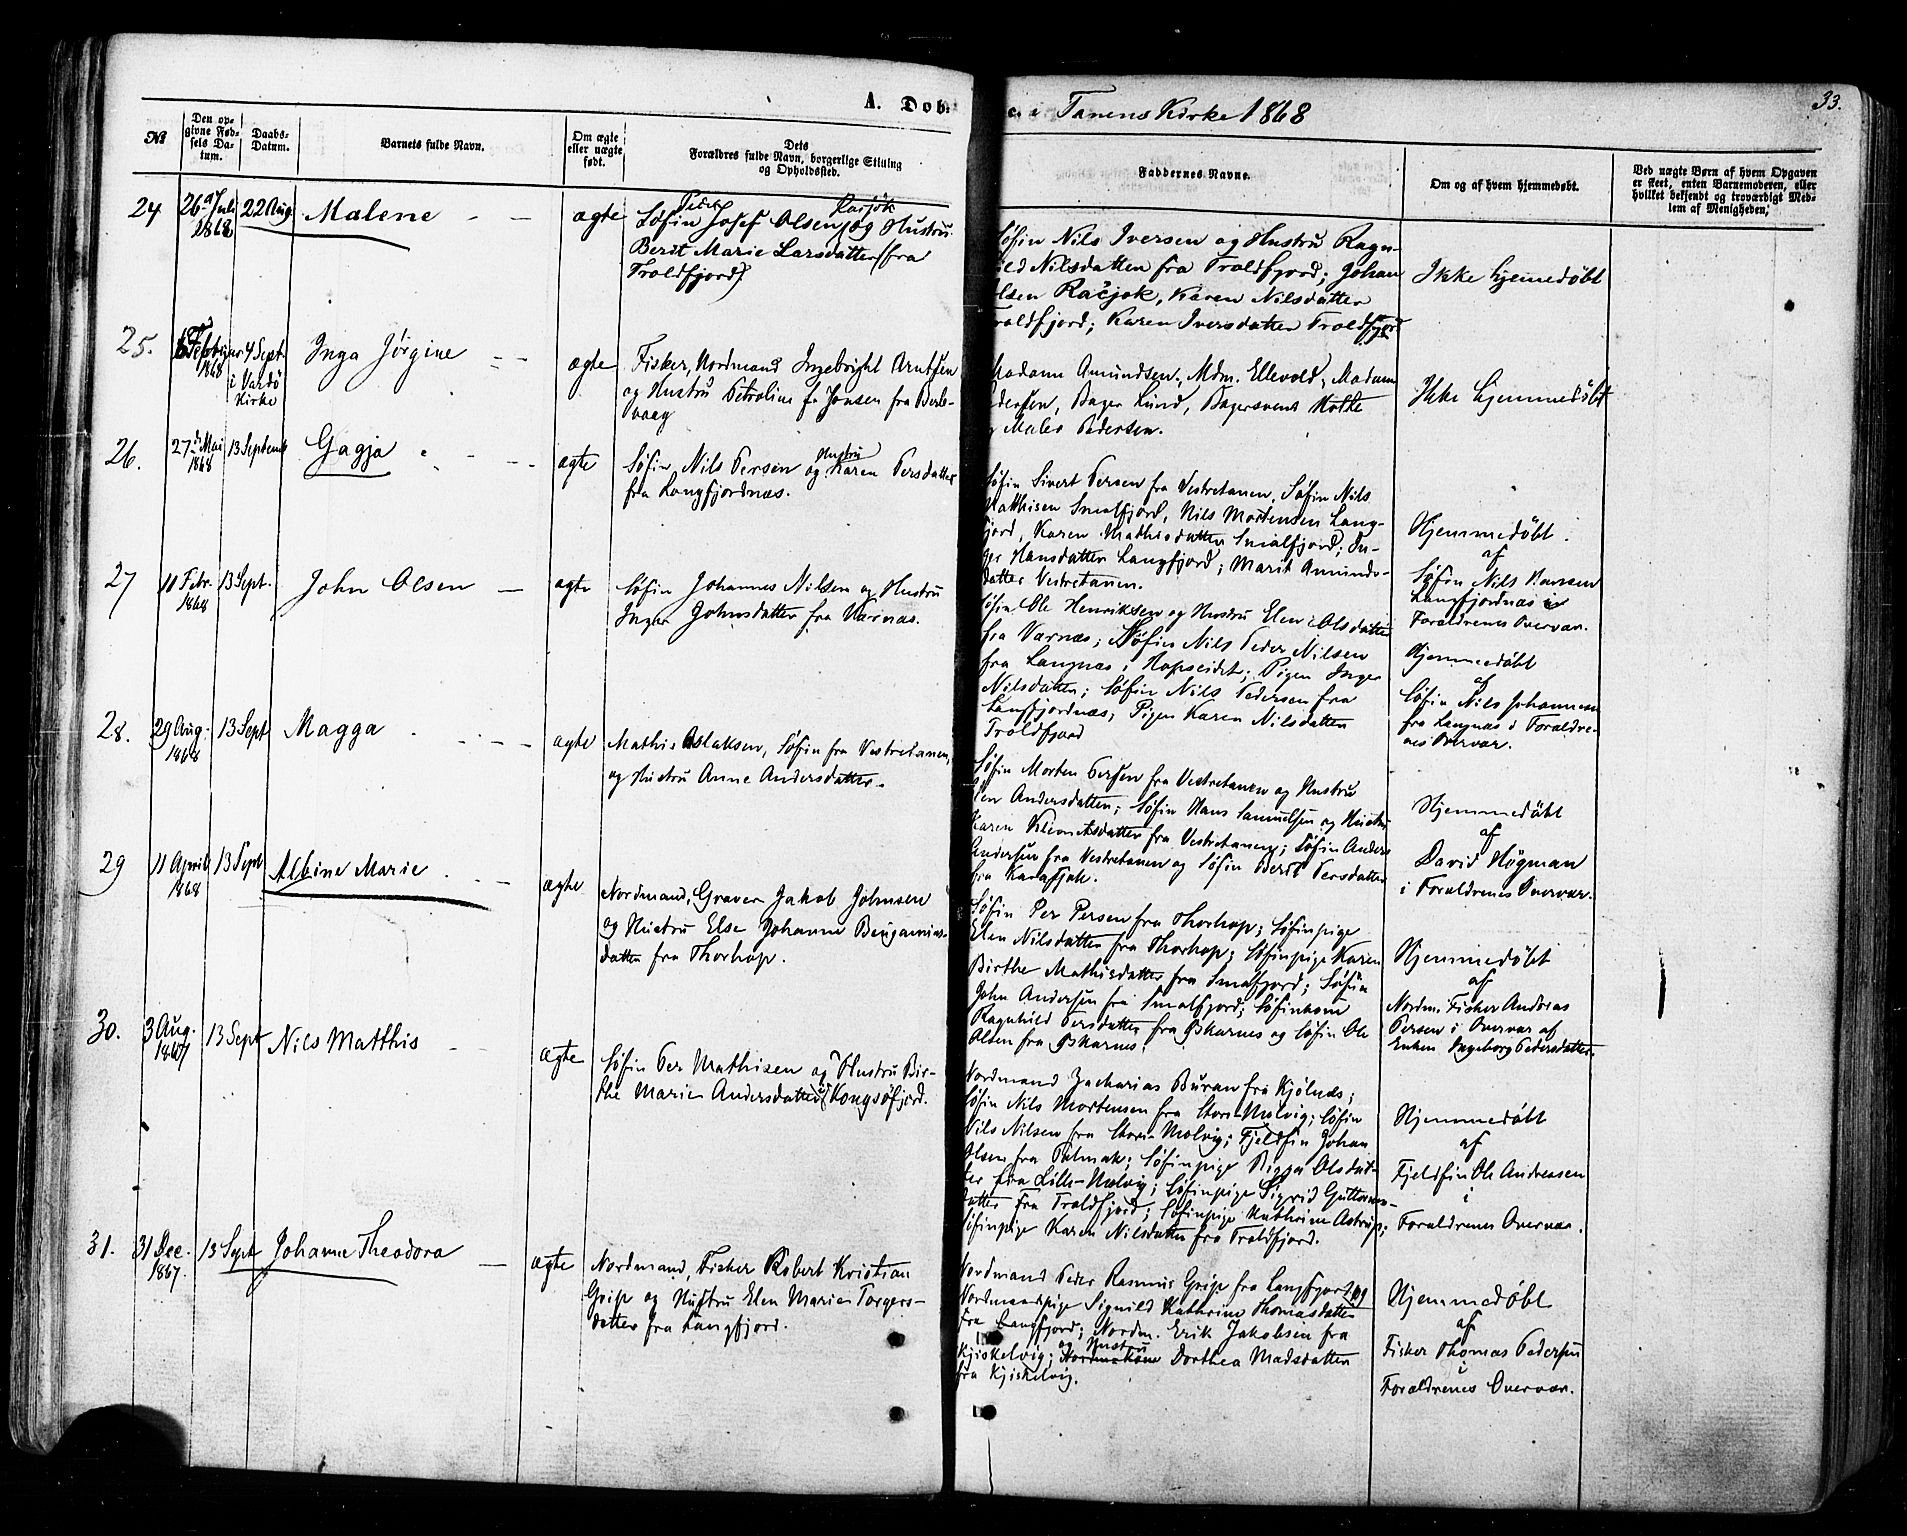 A. Døb
e i Tanens Kirke 1868
33.
No
Den op-
givne Fød-
sels Da-
tum.
Daabs-
Datum.
Barnets fulde Navn.
Om ægte
eller uægte
født.
Dets
Forældres fulde Navn, borgerlige Stilling
og Opholdssted.
Faddernes Navne.
Om og af hvem hjemmedøbt.
Ved uægte Børn af hvem Opgaven
er skeet, enten Barnemoderen, eller
hvilket bekjendt og troværdigt Med-
lem af Menigheden.
24
26 Juli
1868
22 Aug.
Malene
ægte
Søfin Josef Olsen og Hustru
Berit Marie Larsdatter (fra
Troldfjord)
Søfin Nils Iversen og Hustru Ragn-
hild Nilsdatter fra Troldfjord; Johan
Olsen Racjok, Karen Nilsdatter
Troldfjord; Karen Iversdatter Troldfjord
Ikke hjemedøbt
25.
1868
4 Sept.
i Vardö
Kirke
Inga Jørgine
ægte
Fisker, Nordmand Ingebright Arntsen
og Hustru Petroline f. Jensen fra Berle-
vaag
Madam Amundsen, Mdm. Ellevold, Madam
Pedersen, Bager Lund, Bagersvend Holte
og Maler Pedersen.
Ikke hjemmedøbt
26.
27 Mai
1868
13 Septemb
Gagja
ægte
Søfin Nils Persen og Hustru Karen Persdatter
fra Langfjordnæs.
Søfin Sivert Persen fra Vestretanen, Søfin Nils
Matthisen Smalfjord, Nils Mortensen Lang-
fjord, Karen Mathisdatter Smalfjord; In-
ger Hansdatter Langfjord; Marit Amunds-
datter Vestretanen.
Hjemmedøbt
af
Søfin Nils Hansen
Langfjordnæs i
Forældrenes Overvær.
27
11 Febr.
1868
13 Sept.
John Olsen
ægte
Søfin Johannes Nilsen og Hustru
Inger Johnsdatter fra Varnæs.
Søfin Ole Henriksen og Hustru Elen Olsdatter
fra Varnæs; Søfin Nils Peder Nilsen
fra Langnæs i Hopseidet; Pigen Inger
Nilsdatter; Søfin Nils Pedersen fra
Langfjordnæs; Pigen Karen Nilsdatter
Troldfjord
Hjemmedøbt
af
Søfin Nils Johannesen
fra Langnæs i Forældre-
nes Overvær.
28.
29 Aug.
1868
13 Sept
Magga
ægte
Mathis Aslaksen, Søfin fra Vestretanen,
og Hustru Anne Andersdatter.
Søfin Morten Persen fra Vestretanen og Hustru
Elen Andersdatter; Søfin Hans Samuelsen og Hustru
Karen Klemetsdatter fra Vestretanen; Søfin Anders
Andersen fra Vestretanen og Søfin Berit Persdatter
fra Karasjok.
Hjemmedøbt
af
David Høgman
i Forældrenes Overvær.
29
11 April
1868
13 Sept
Albine Marie
ægte
Nordmand, Graver Jakob Johnsen
og Hustru Else Johanne Benjamins-
datter fra Thorhop.
Søfin Per Persen fra Thorhop; Søfinpige
Elen Nilsdatter fra Thorhop; Søfinpige Karen
Birthe Mathisdatter fra Smalfjord; Søfin
John Andersen fra Smalfjord; Søfinkone
Ragnhild Persdatter fra Østkarnes og Søfin Ole
Olsen fra
Hjemmedøbt
af
Nordm. Fisker Andreas
Persen i Overvær af
Enken Ingeborg Pedersdatter.
30.
3 Aug.
1867
13 Sept
Nils Matthis
ægte
Søfin Per Mathisen og Hustru Bir-
the Marie Andersdatter Kongsøfjord.
Nordmand Zacharias Buran fra Kjølnæs;
Søfin Nils Mortensen fra Store-Molvig; Søfin
Nils Nilsen fra Store-Molvig; Fjeldfin Johan
Olsen fra Polmak; Søfinpige Bigga Olsdat-
ter fra Lille-Molvig; Søfinpige Sigrid Guttorms-
datter fra Troldfjord; Søfinpige Kathrine Astrup;
Søfinpige Karen Nilsdatter fra Troldfjord.
Hjemmedøbt
af
Fjeldfin Ole Andreasen
i
Forældrenes Overvær.
31.
31 Dec.
1867.
13 Sept
Johanne Theodora
ægte
Nordmand, Fisker Robert Kristian
Grip og Hustru Elen Marie Torgers-
datter fra Langfjord.
Nordmand Peder Rasmus Grip fra Langfjord og
Nordmandspige Signild Kathrine Thomasdatter
fra Langfjord; Nordm. Erik Jakobsen fra
Kjiskelvig; og Hustru Dorthea Madsdatter
fra Kjiskelvig.
Hjemmedøbt
af
Fisker Thomas Pedersen
i
Forældrenes Overvær.